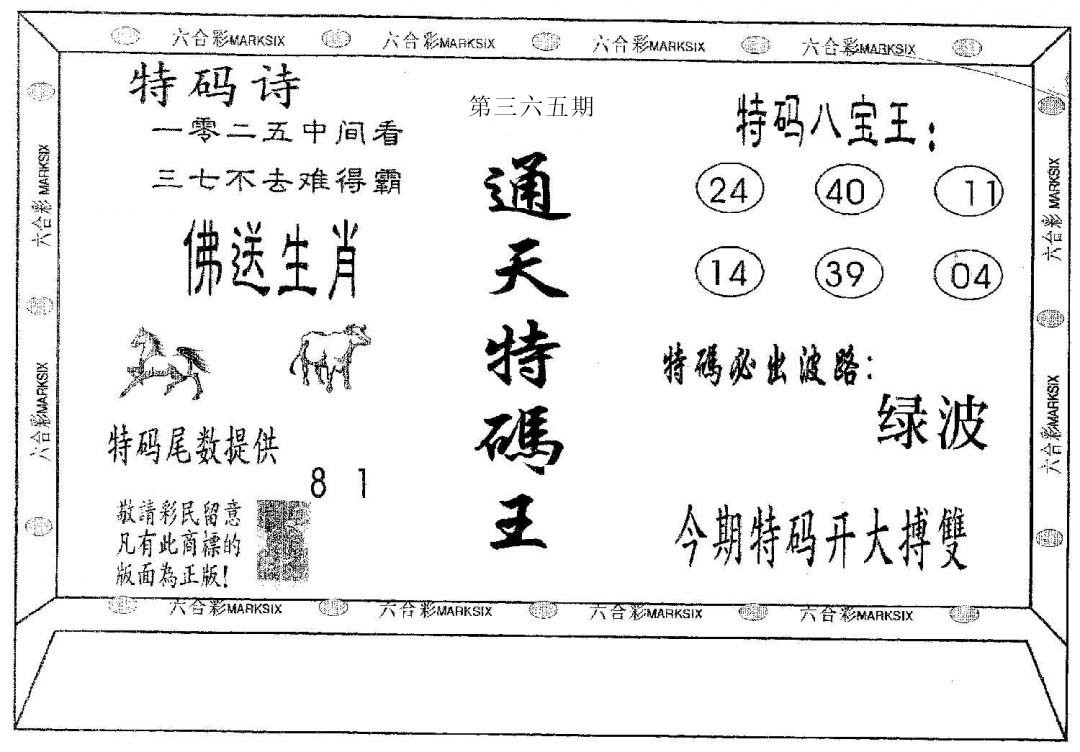 六合彩MARKSIX 六合彩MARKSIX 六合彩MARKSIX 六合彩MARKSIX
六合彩MARKSIX
六合彩MARKSIX
特码诗
一零二五中间看
三七不去难得霸
佛送生肖
特码尾数提供
8 1
敬請彩民留意
凡有此商標的
版面為正版!
第三六五期
通天特碼王
特码八宝王:
24 40 11
14 39 04
特碼必出波路:
绿波
今期特码开大搏雙
六合彩MARKSIX
六合彩MARKSIX
六合彩MARKSIX 六合彩MARKSIX 六合彩MARKSIX 六合彩MARKSIX